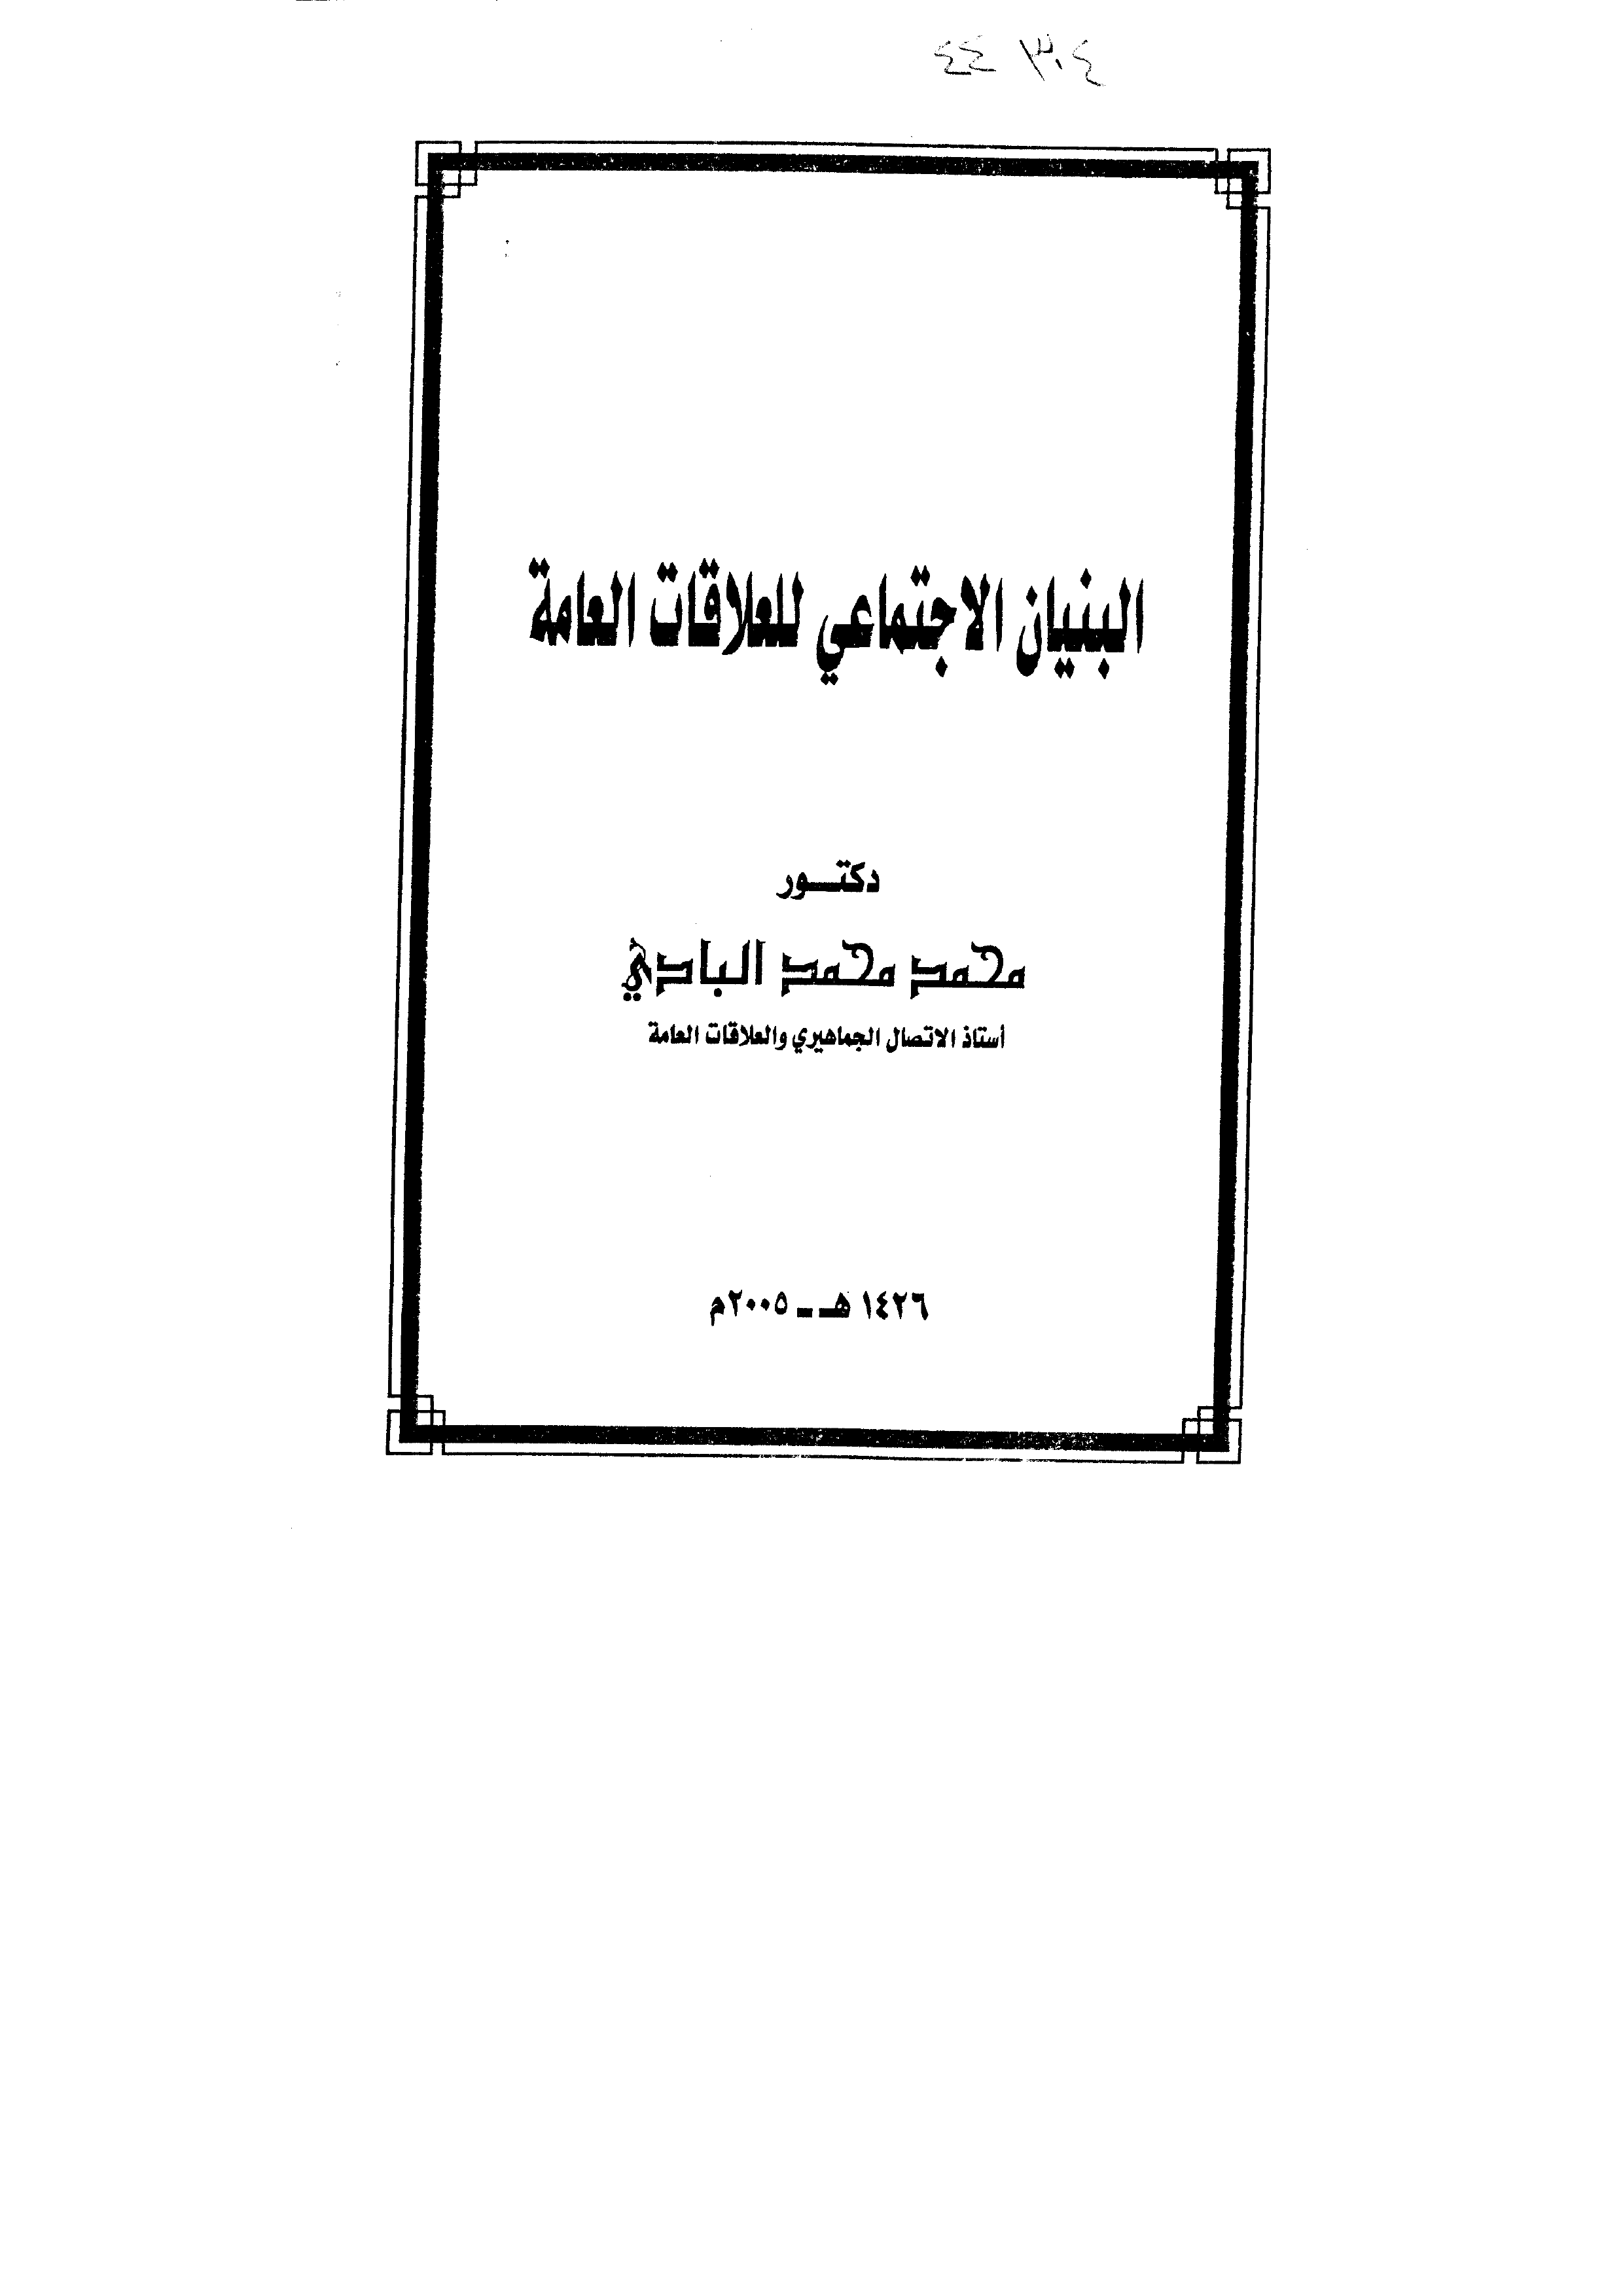 البنيان الاجتماعي للعلاقات العامة
دكتـــور
محمد محمد البادي
أستاذ الاتصال الجماهيري والعلاقات العامة
١٤٢٦ هـ ـ ٢٠٠٥م